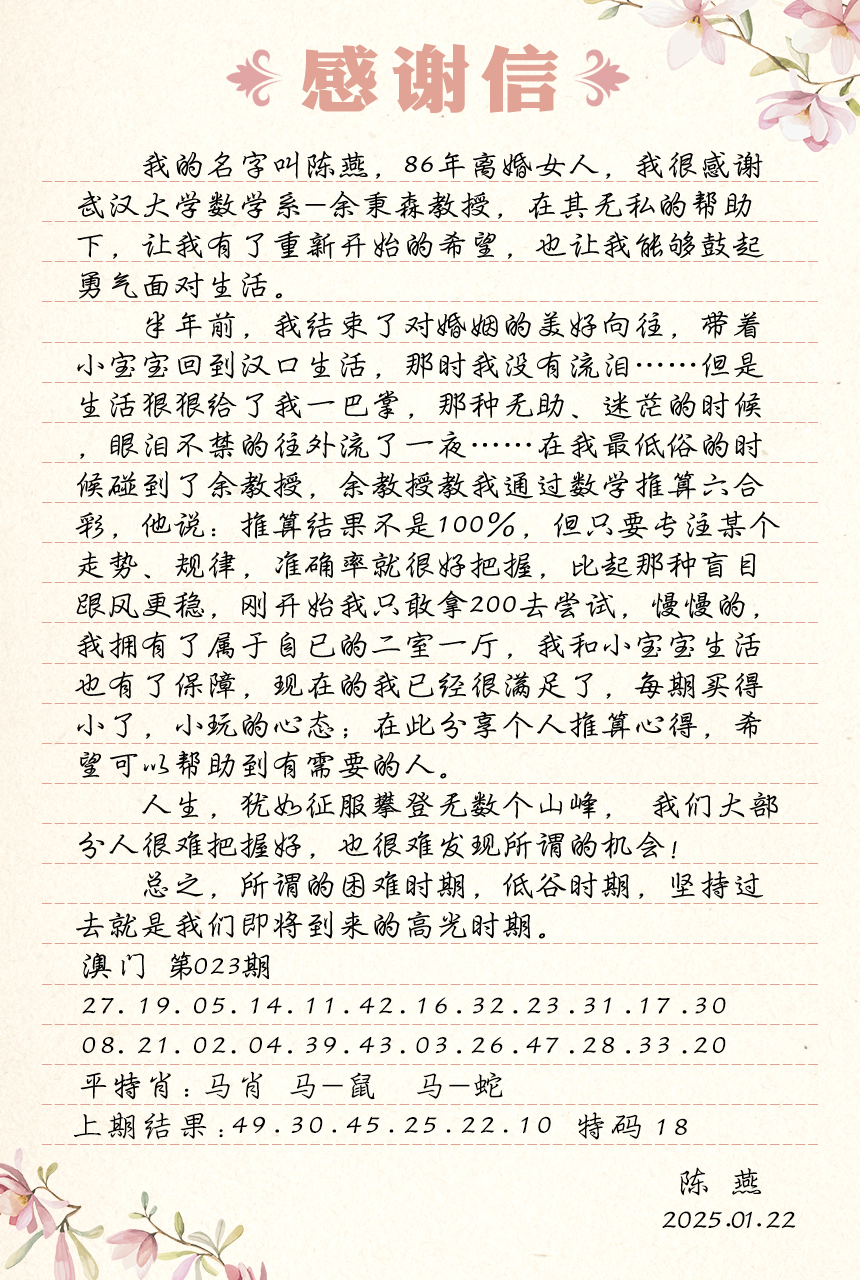 感谢信
我的名字叫陈燕，86年离婚女人，我很感谢
武汉大学数学系—余秉森教授，在其无私的帮助
下，让我有了重新开始的希望，也让我能够鼓起
勇气面对生活。
半年前，我结束了对婚姻的美好向往，带着
小宝宝回到汉口生活，那时我没有流泪……但是
生活狠狠给了我一巴掌，那种无助、迷茫的时候
，眼泪不禁的往外流了一夜……在我最低俗的时
候碰到了余教授，余教授教我通过数学推算六合
彩，他说：推算结果不是100%，但只要专注某个
走势、规律，准确率就很好把握，比起那种盲目
跟风更稳，刚开始我只敢拿200去尝试，慢慢的，
我拥有了属于自已的二室一厅，我和小宝宝生活
也有了保障，现在的我已经很满足了，每期买得
小了，小玩的心态；在此分享个人推算心得，希
望可以帮助到有需要的人。
人生，犹如征服攀登无数个山峰， 我们大部
分人很难把握好，也很难发现所谓的机会！
总之，所谓的困难时期，低谷时期，坚持过
去就是我们即将到来的高光时期。
澳门 第023期
27.19.05.14.11.42.16.32.23.31.17.30
08.21.02.04.39.43.03.26.47.28.33.20
平特肖：马肖 马—鼠 马—蛇
上期结果：49.30.45.25.22.10 特码 18
陈 燕
2025.01.22